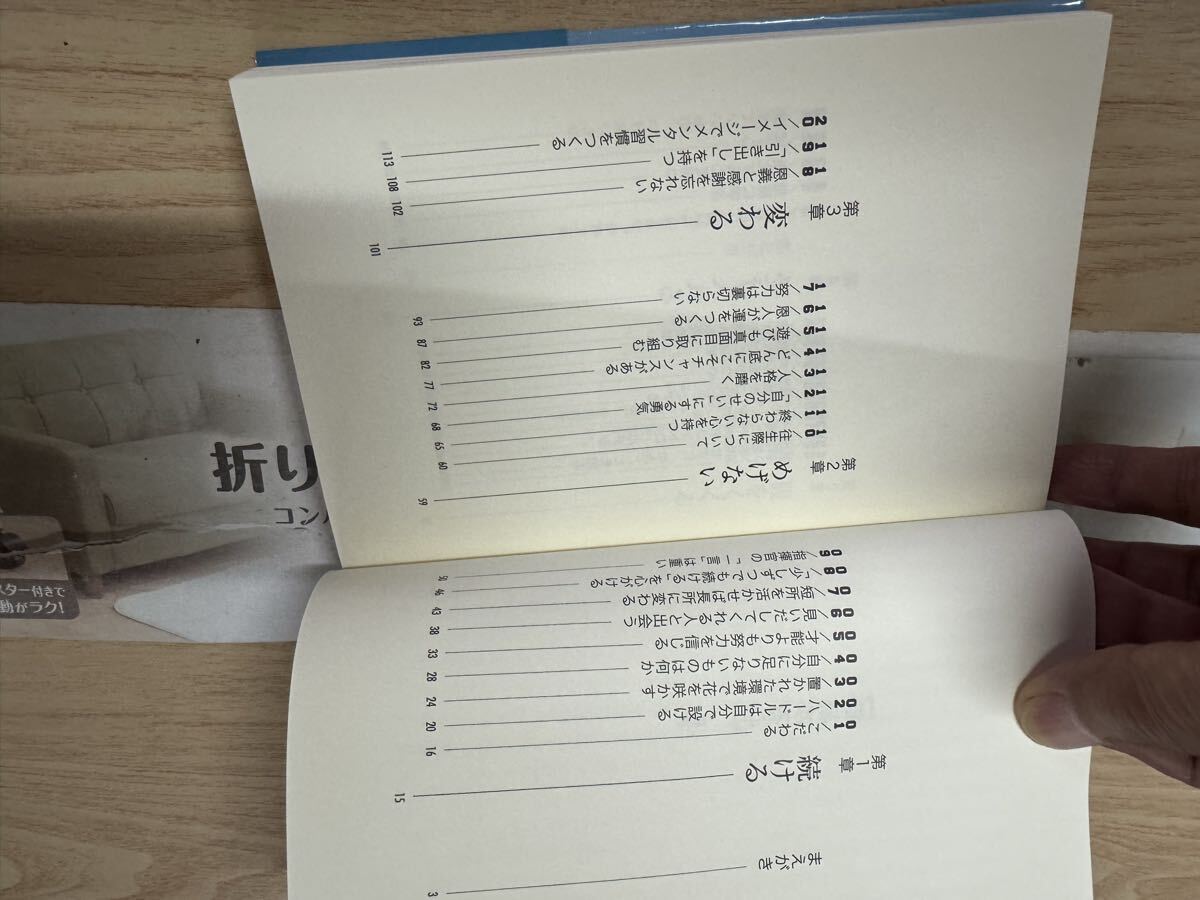 まえがき 3
第1章 続ける 15
01/こだわる 16
02/ハードルは自分で設ける 20
03/置かれた環境で花を咲かす 24
04/自分に足りないものは何か 28
05/才能よりも努力を信じる 33
06/見いだしてくれる人と出会う 38
07/短所を活かせば長所に変わる 43
08/「少しずつでも続ける」を心がける 46
09/指揮官の「一言」は重い
第2章 めげない 59
10/往生際について 60
11/終わらない心を持つ 65
12/「自分のせい」にする勇気 68
13/人格を磨く 72
14/どん底にこそチャンスがある 77
15/遊びも真面目に取り組む 82
16/恩人が運をつくる 87
17/努力は裏切らない 93
第3章 変わる 101
18/恩義と感謝を忘れない 102
19/「引き出し」を持つ 108
20/イメージでメンタル習慣をつくる 113
折り
コン
スター付きで
動がラク!